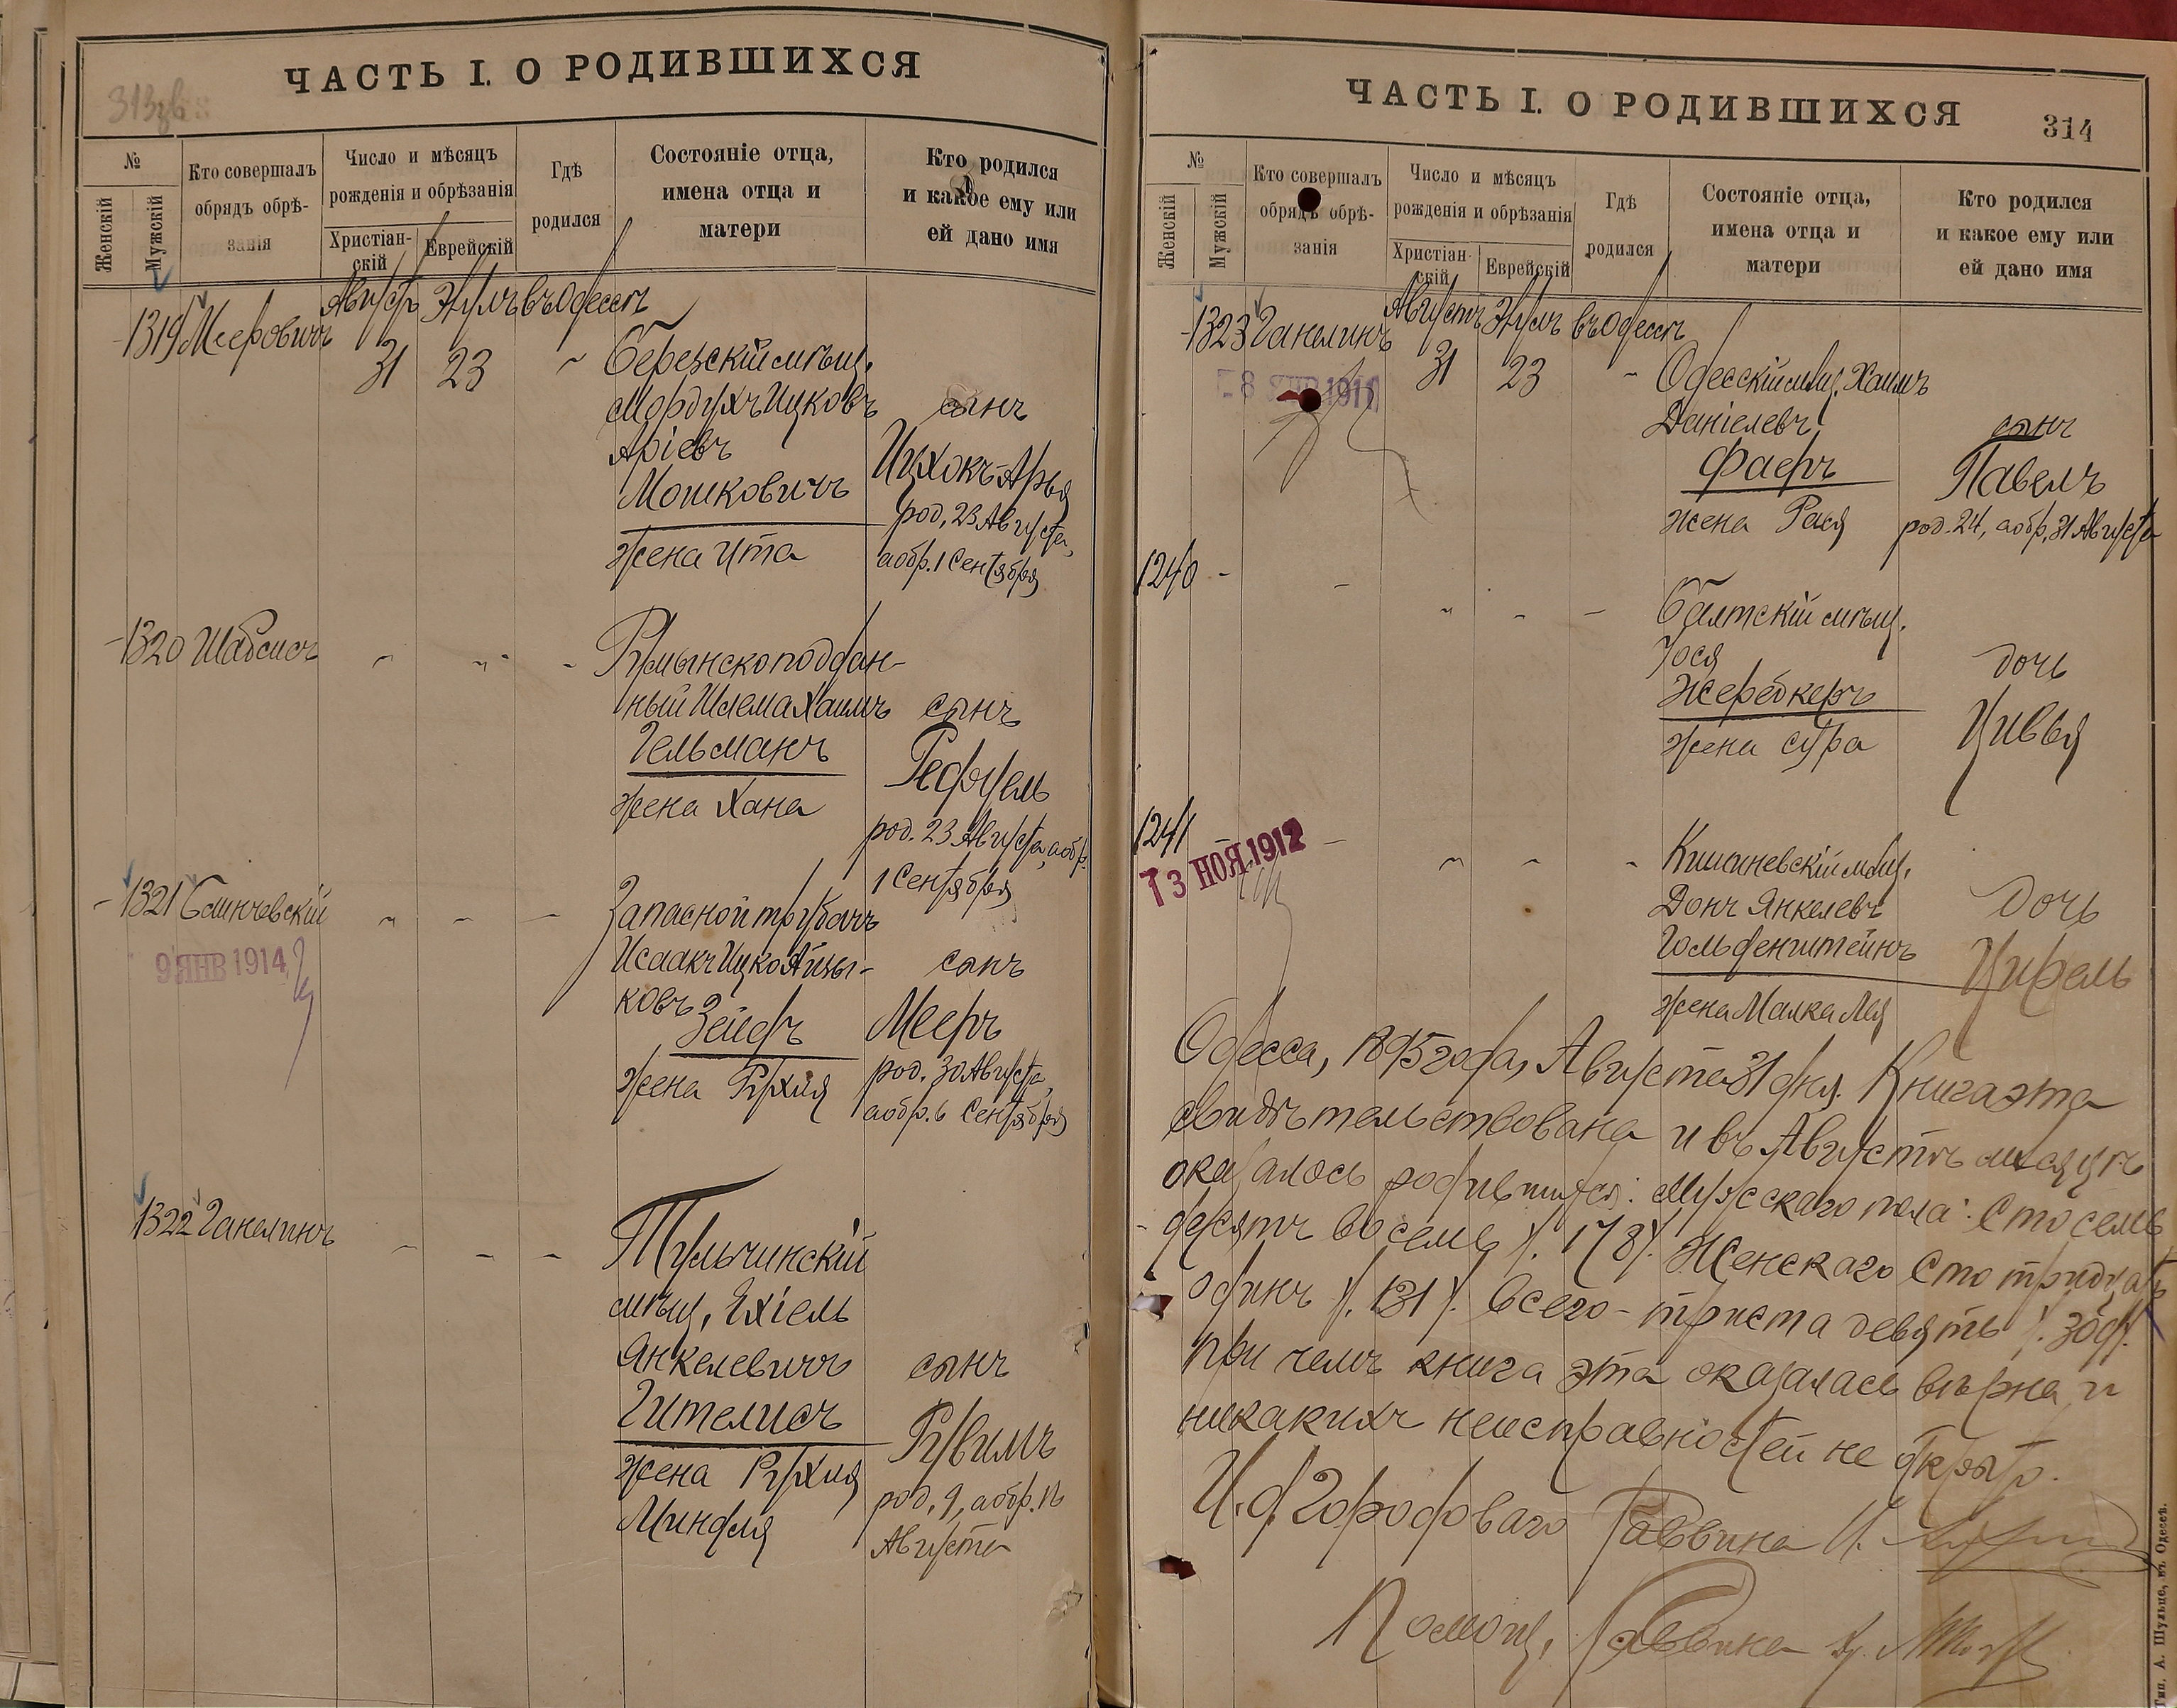 ЧАСТЬ I. О РОДИВШИХСЯ
№
Женскій
Мужскій
Кто совершалъ
обрядъ обрѣ-
занія
Число и мѣсяцъ
рожденія и обрѣзанія
Христіан-
скій
Еврейскій
Гдѣ
родился
Состояніе отца,
имена отца и
матери
Кто родился
и какое ему или
ей дано имя
Августъ Элулъ въ Одессѣ
1319 Мееровичъ 31 23 "
Березскій мѣщ.
Мордухъ Ицковъ
Аріевъ
Мошковичъ
жена Ита
сынъ
Ицхокъ-Арья
род. 23 Августа,
а обр. 1 Сентября
1320 Шабсисъ " " "
Румынскоподдан-
ный Шлема Хаимъ
Гельманъ
жена Хана
сынъ
Рефуель
род. 23 Августа, а обр.
1 Сентября
1321 " " "
9 ЯНВ 1914
Запасной трубачъ
Исаакъ Ицко Айзы-
ковъ
Зейферъ
жена Рухля
сынъ
Мееръ
род. 30 Августа,
а обр. 6 Сентября
1322 Ганелинъ " " "
Тульчинскій
мѣщ. Ехіель
Янкелевичъ
Гителисъ
жена Рухля
Миндля
сынъ
Рувимъ
род. 9, а обр. 16
Августа
ЧАСТЬ I. О РОДИВШИХСЯ
314
№
Женскій
Мужскій
Кто совершалъ
обрядъ обрѣ-
занія
Число и мѣсяцъ
рожденія и обрѣзанія
Христіан-
скій
Еврейскій
Гдѣ
родился
Состояніе отца,
имена отца и
матери
Кто родился
и какое ему или
ей дано имя
Августъ Элулъ въ Одессѣ
1323 Ганелинъ 31 23 "
Одесскій мѣщ. Хаимъ
Даніелевъ
Фаеръ
жена Рася
сынъ
Павелъ
род. 24, а обр. 31 Августа
1240 - " " "
Балтскій мѣщ.
Іося
Жеребкеръ
жена Сура
дочь
Цивья
1241 - " " "
13 НОЯ 1912
Кишиневскій мѣщ.
Донъ Янкелевъ
Гольденштейнъ
жена Малка Лея
дочь
Ципель
Одесса, 1895 года, Августа 31 дня. Книга эта
свидѣтельствована и въ Августѣ мѣсяцѣ
оказалось родившихся: Мужескаго пола: Сто семь
десятъ восемь /. 178 /. Женскаго Сто тридцать
одинъ /. 131 /. Всего - триста девять /. 309 /.
при чемъ книга эта оказалась вѣрна и
никакихъ неисправностей не открыто.
И. д. Городоваго Раввина
Помощ. Раввина
Тип. А. Шульце, въ Одессѣ.